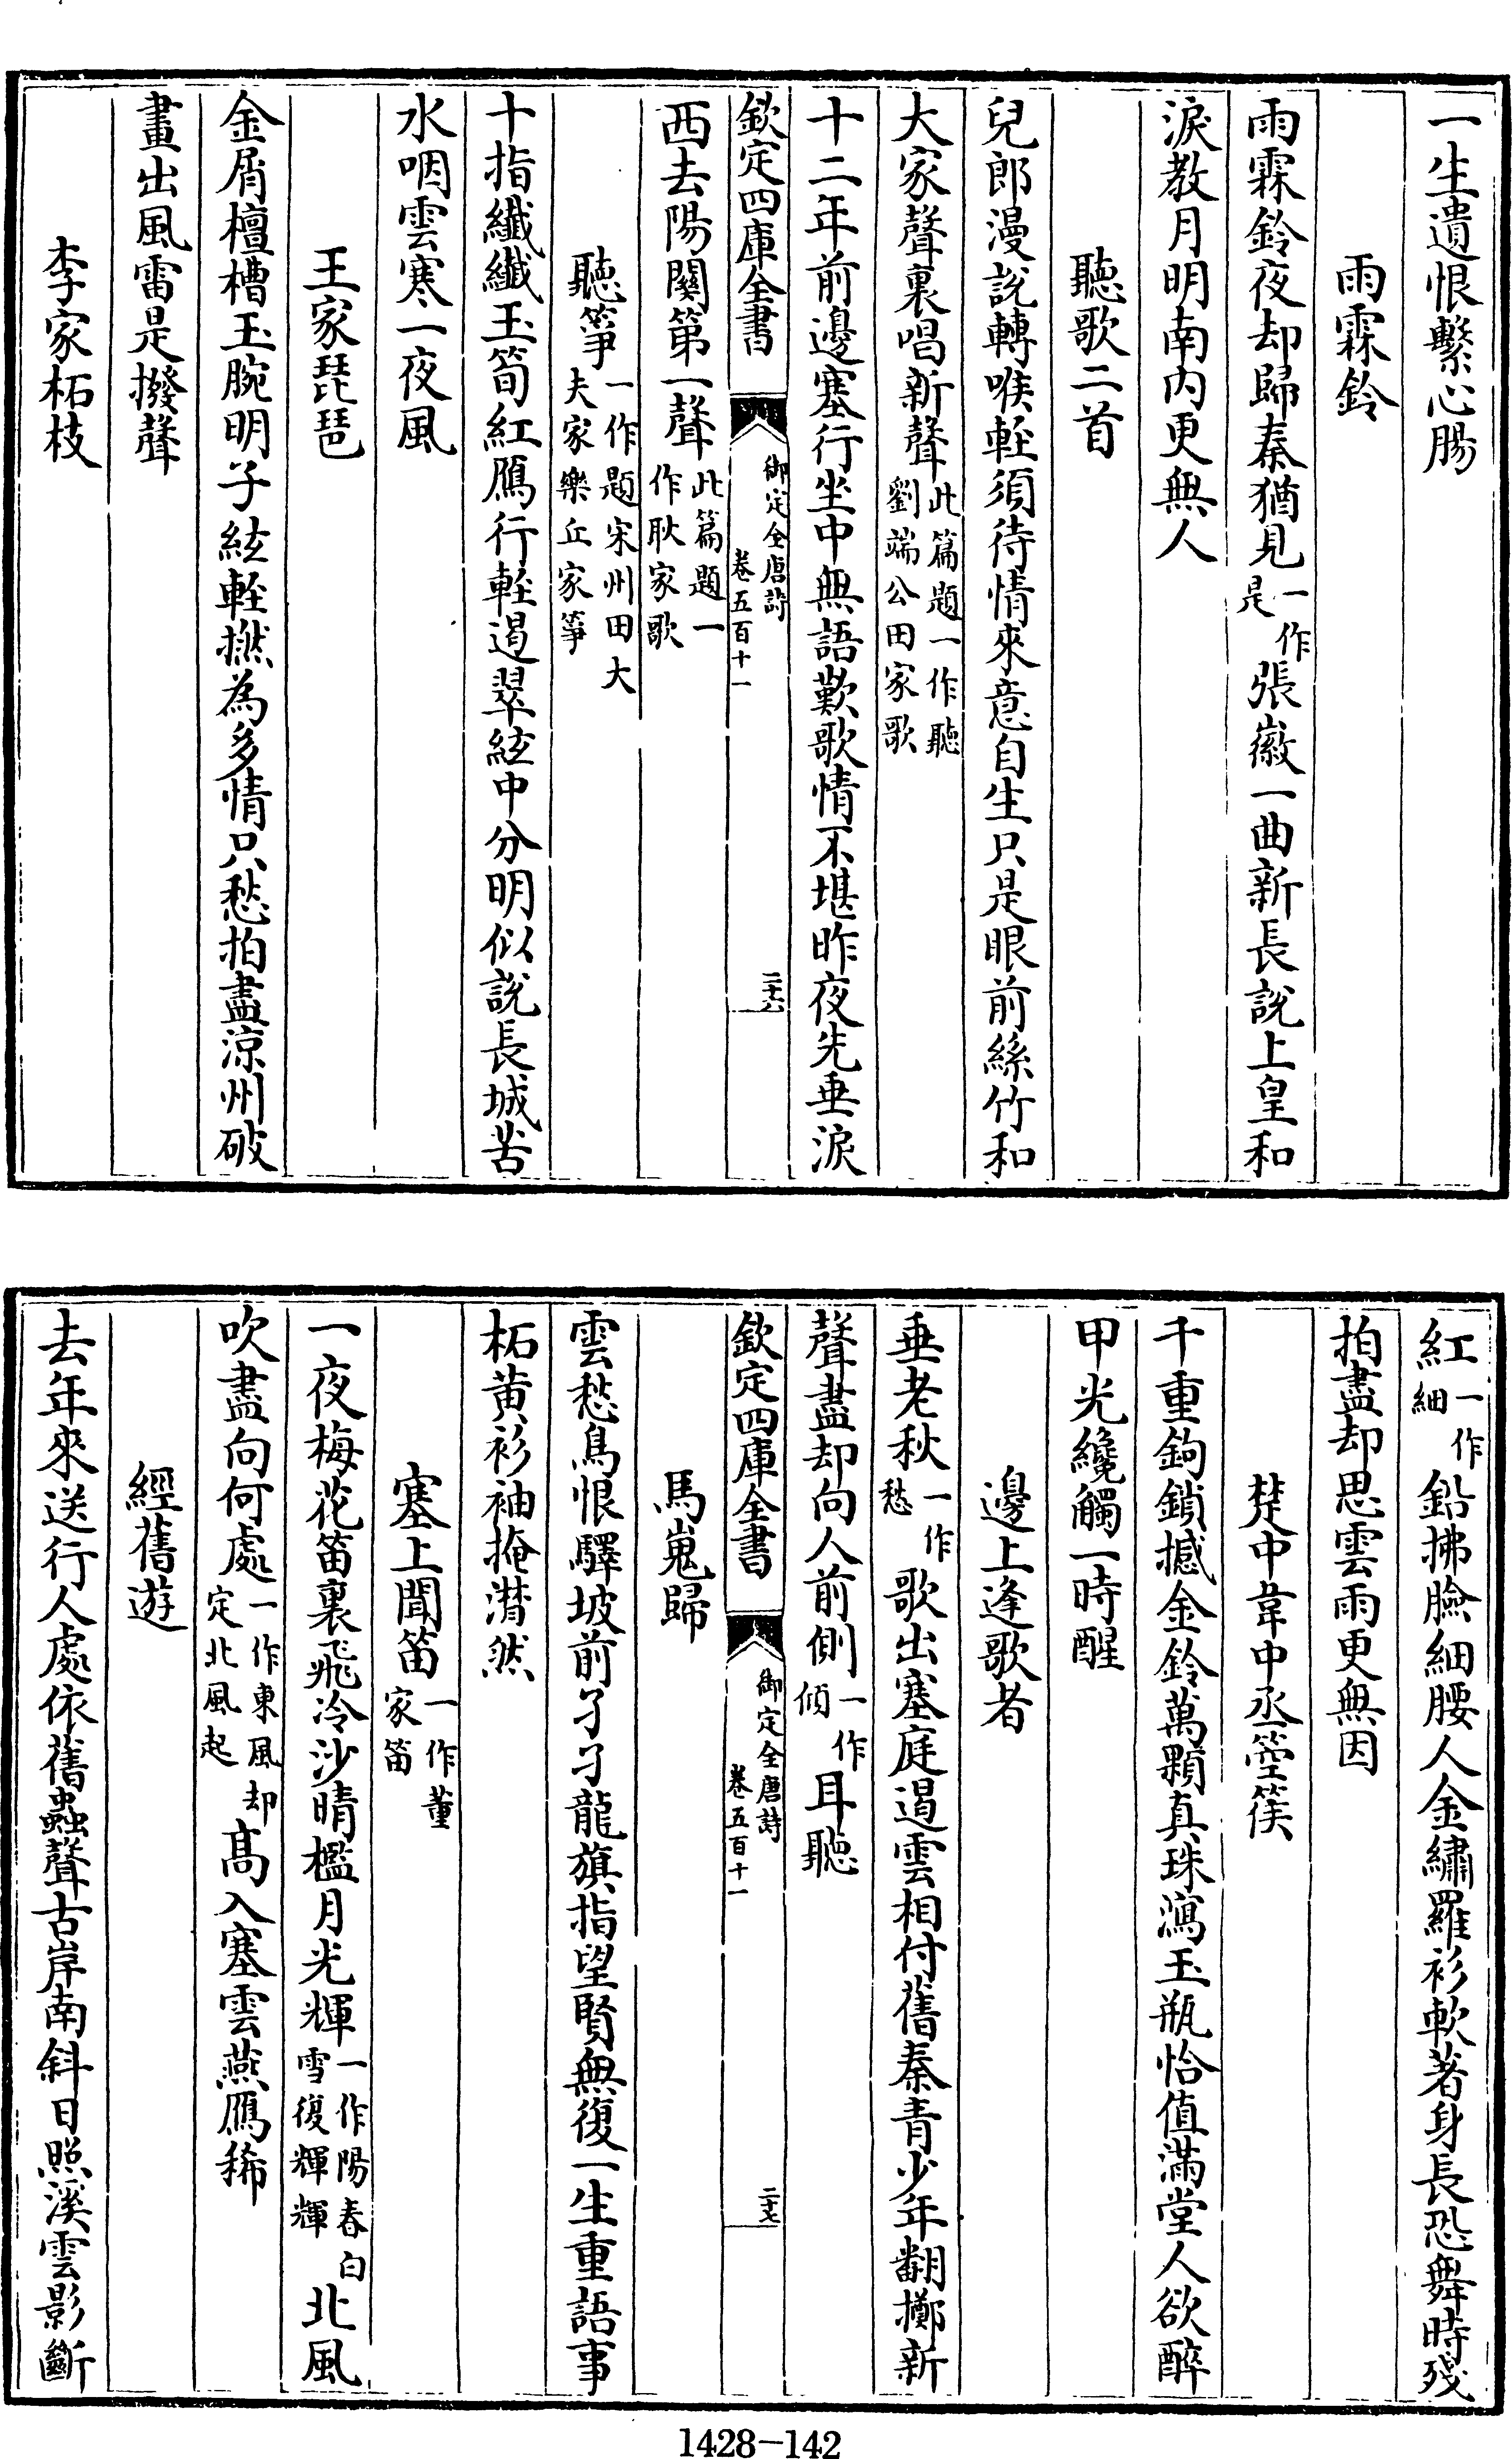 一生遺恨繫心腸
雨霖鈴
雨霖鈴夜却歸秦猶見一作是張徽一曲新長說上皇和
淚教月明南內更無人
聽歌二首
兒郎漫說轉喉輕須待情來意自生只是眼前絲竹和
大家聲裏唱新聲此篇題一作聽劉端公田家歌
十二年前邊塞行坐中無語歎歌情不堪昨夜先垂淚
欽定四庫全書
御定全唐詩
卷五百十一
二十六
西去陽關第一聲此篇題一作耿家歌
聽箏一作題宋州田大夫家樂丘家箏
十指纖纖玉筍紅鴈行輕遏翠絃中分明似說長城苦
水咽雲寒一夜風
王家琵琶
金屑檀槽玉腕明子絃輕撚為多情只愁拍盡涼州破
畫出風雷是撥聲
李家柘枝
紅一作細鉛拂臉細腰人金繡羅衫軟著身長恐舞時殘
拍盡却思雲雨更無因
楚中韋中丞箜篌
千重鉤鎖撼金鈴萬顆真珠瀉玉瓶恰值滿堂人欲醉
甲光纔觸一時醒
邊上逢歌者
垂老秋一作愁歌出塞庭遏雲相付舊秦青少年翻擲新
聲盡却向人前側一作傾耳聽
欽定四庫全書
御定全唐詩
卷五百十一
二十七
馬嵬歸
雲愁鳥恨驛坡前孑孑龍旗指望賢無復一生重語事
柘黃衫袖掩潸然
塞上聞笛一作董家笛
一夜梅花笛裏飛冷沙晴檻月光輝一作陽春白雪復輝輝北風
吹盡向何處一作東風却定北風起高入塞雲燕鴈稀
經舊遊
去年來送行人處依舊蟲聲古岸南斜日照溪雲影斷
1428-142